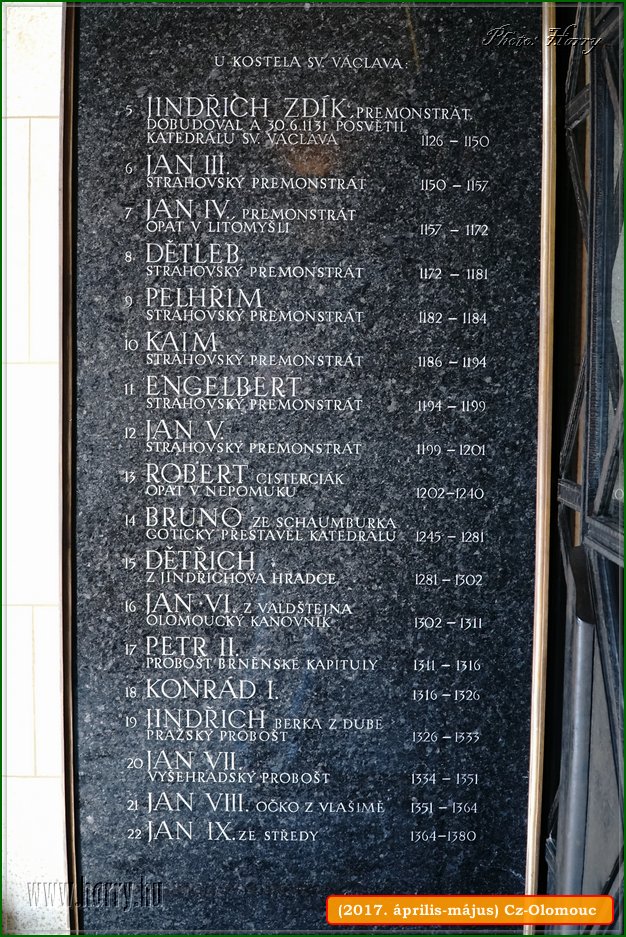 Photo: Harry
U KOSTELA SV. VÁCLAVA:
5 JINDŘICH ZDÍK, PREMONSTRÁT,
DOBUDOVAL A 30.6.1131 POSVĚTIL
KATEDRÁLU SV. VÁCLAVA 1126 – 1150
6 JAN III.
STRAHOVSKÝ PREMONSTRÁT 1150 – 1157
7 JAN IV. PREMONSTRÁT
OPAT V LITOMYŠLI 1157 – 1172
8 DĚTLEB
STRAHOVSKÝ PREMONSTRÁT 1172 – 1181
9 PELHŘIM
STRAHOVSKÝ PREMONSTRÁT 1182 – 1184
10 KAIM
STRAHOVSKÝ PREMONSTRÁT 1186 – 1194
11 ENGELBERT
STRAHOVSKÝ PREMONSTRÁT 1194 – 1199
12 JAN V.
STRAHOVSKÝ PREMONSTRÁT 1199 – 1201
13 ROBERT CISTERCIÁK
OPAT V NEPOMUKU 1202–1240
14 BRUNO ZE SCHAUMBURKA
GOTICKY PŘESTAVĚL KATEDRÁLU 1245 – 1281
15 DĚTŘICH
Z JINDŘICHOVA HRADCE 1281 – 1302
16 JAN VI. Z VALDŠTEJNA
OLOMOUCKÝ KANOVNÍK 1302 – 1311
17 PETR II.
PROBOŠT BRNĚNSKÉ KAPITULY 1311 – 1316
18 KONRÁD I. 1316 – 1326
19 JINDŘICH BERKA Z DUBÉ
PRAŽSKÝ PROBOŠT 1326 – 1333
20 JAN VII.
VYŠEHRADSKÝ PROBOŠT 1334 – 1351
21 JAN VIII. OČKO Z VLAŠIMĚ 1351 – 1364
22 JAN IX. ZE STŘEDY 1364–1380
www.harry.hu
(2017. április-május) Cz-Olomouc